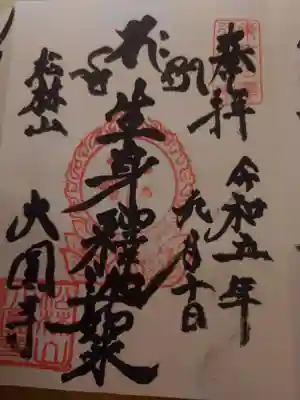 奉拝
令和五年
九月十日
生身釈迦如来
松林山
大圓寺